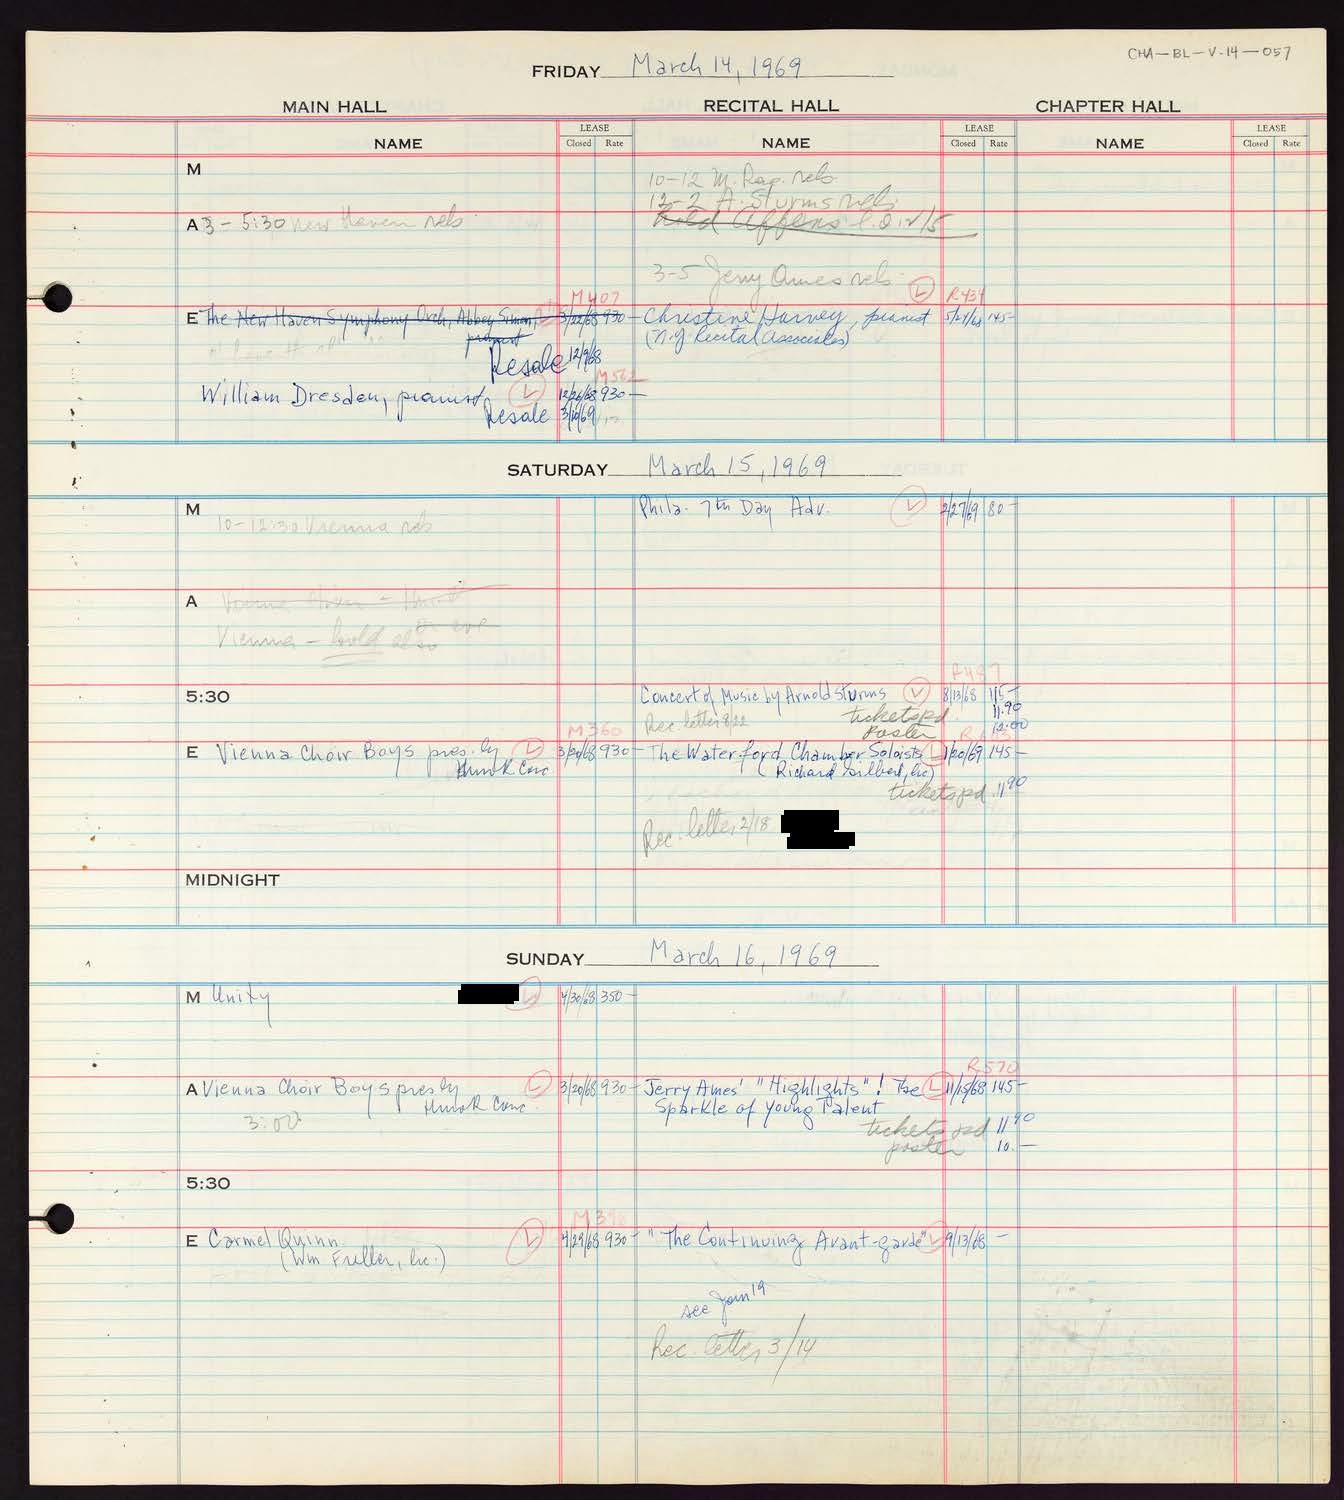 CHA-BL-V-14-057
FRIDAY March 14, 1969
MAIN HALL RECITAL HALL CHAPTER HALL
NAME LEASE Closed Rate NAME LEASE Closed Rate NAME LEASE Closed Rate
M
10-12 M. Rag. rehs.
12-2 A. Sturms rehs.
A 3-5:30 New Haven rehs
Hold
3-5 Jerry Ames rehs.
M407 R434
E The New Haven Symphony Orch, Abbey Simon, 3/22/68 930- Christine Harvey, pianist 145-
pianist (N.Y. Recital Associates)
Resale 12/9/68
M562
William Dresden, pianist L 12/26/68 930-
Resale 3/10/69
SATURDAY March 15, 1969
M Phila. 7th Day Adv. L 2/27/69 80-
10-12:30 Vienna rehs
A Vienna
Vienna - hold also eve
R487
5:30 Concert of Music by Arnold Sturms L 8/13/68 115-
Rec. letter 8/22 tickets pd. 11.90
poster 12.00
M360
E Vienna Choir Boys pres. by L 3/20/68 930- The Waterford Chamber Soloists L 1/20/69 145-
Hurok Conc (Richard Gilbert, Inc)
tickets pd. 11 90
Rec. letter 2/18
MIDNIGHT
SUNDAY March 16, 1969
M Unity L 4/30/68 350-
R570
A Vienna Choir Boys pres by L 3/20/68 930- Jerry Ames' "Highlights"! The L 11/15/68 145-
Hurok Conc. Sparkle of Young Talent
3:00 tickets pd 11 90
poster 10.-
5:30
M396
E Carmel Quinn L 4/29/68 930- "The Continuing Avant-garde" L 9/13/68 -
(Wm Fuller, Inc.)
see Jan 19
Rec. letter 3/14